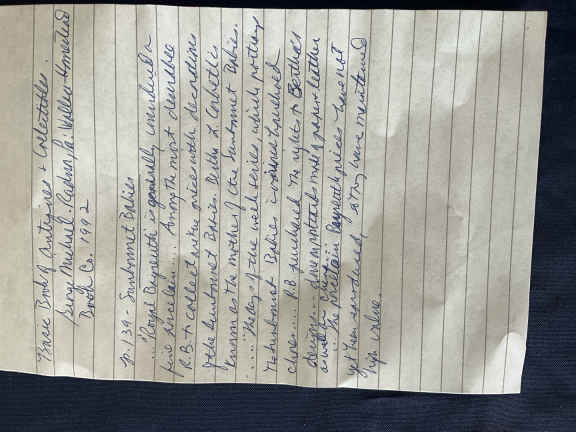 Basic Book of Antiques & Collectibles.
George Michael. Radnor, Pa: Wallace-Homestead
Book Co. 1992
p. 139 - Sunbonnet Babies
"Royal Bayreuth is generally considered a
fine porcelain.... Among the most desirable
R.B. to collect are the pieces with decorations
of the Sunbonnet Babies. Bertha L. Corbett is
known as the mother of the Sunbonnet Babies.
..... The days of the week series which portrays
the Sunbonnet Babies household
chores..... R.B. purchased the rights to Bertha's
designs... demonstrated made of paper leather
as well as
The Bayreuth pieces have not
yet been reproduced, so they have maintained
high value.